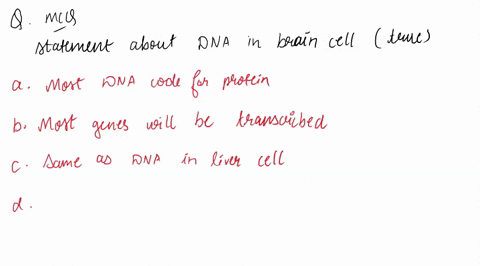 Q. MCQ
statement about DNA in brain cell (true)
a. Most DNA code for protein
b. Most genes will be transcribed
c. Same as DNA in liver cell
d.